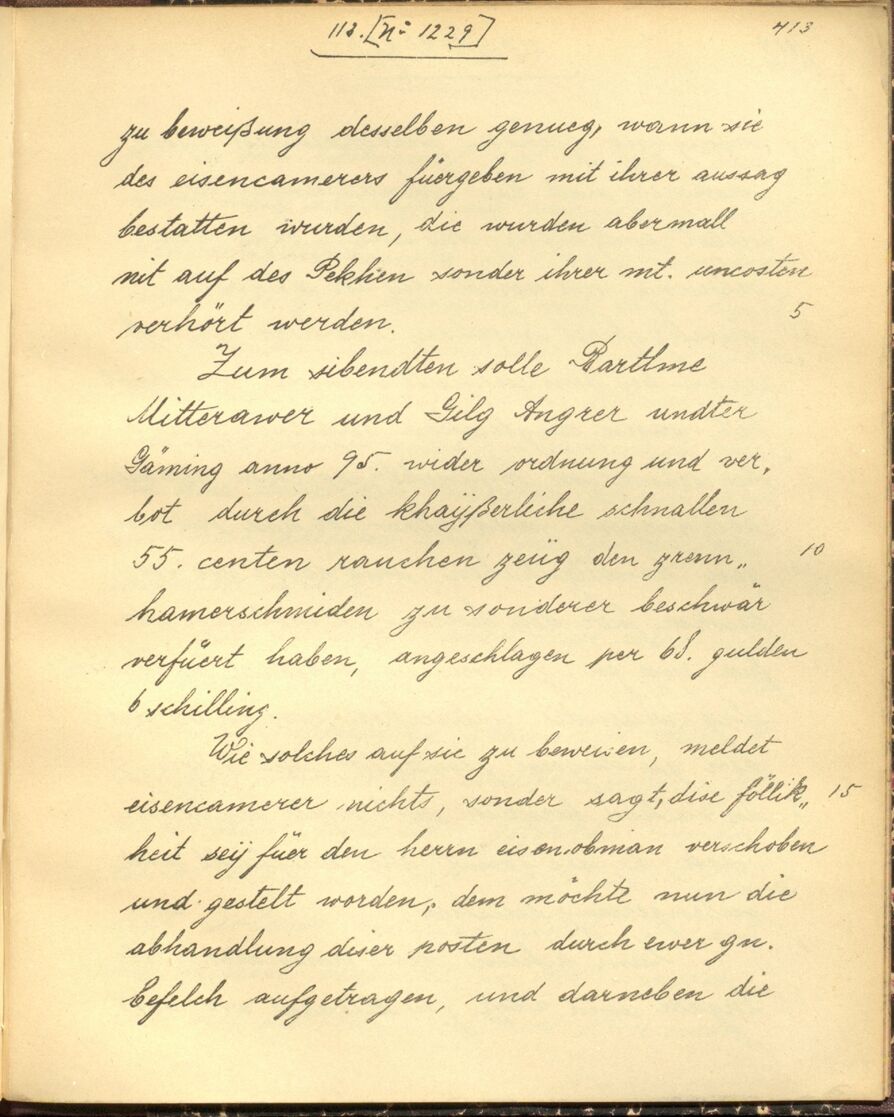 113. [No 1229]
413
zu beweißung desselben genueg, wann sie
des eisencamerers füergeben mit ihrer aussag
bestatten wurden, die wurden abermall
nit auf des Pekhen sonder ihrer mt. uncosten
verhört werden. 5
Zum sibendten solle Partlme
Mitterawer und Gilg Angrer undter
Gäming anno 95. wider ordnung und ver„
bot durch die khaÿßerliche schnallen
55. centen rauchen zeüg den zrenn„ 10
hamerschmiden zu sonderer beschwär
verfüert haben, angeschlagen per 68. gulden
6 schilling.
Wie solches auf sie zu beweisen, meldet
eisencamerer nichts, sonder sagt, dise föllik„ 15
heit seÿ füer den herrn eisenobman verschoben
und gestelt worden, dem möchte nun die
abhandlung diser posten durch ewer gn.
befelch aufgetragen, und darneben die